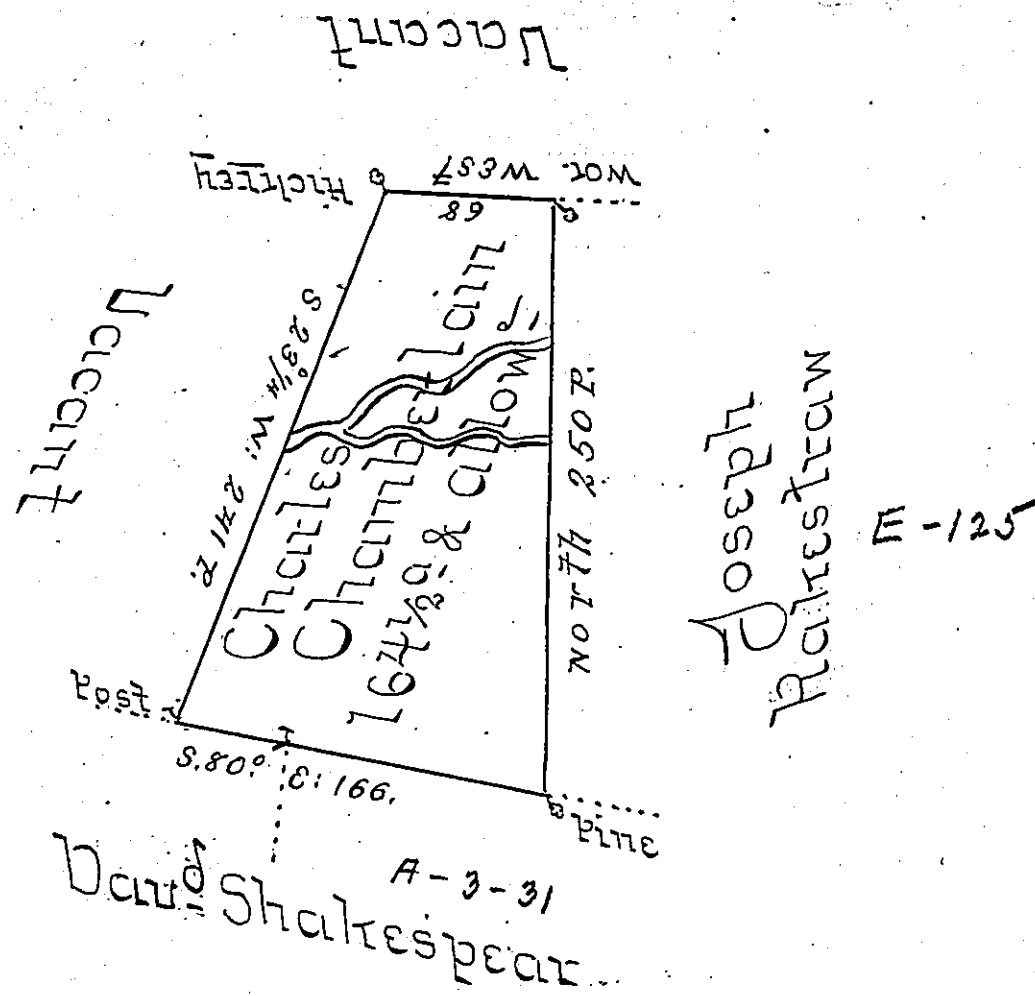 Vacant
Hickrey
W.O.
West
68
Vacant
S 23°¼ W: 241 P.
Charles
Chamberlain
164½ a. & allowd.
North 250 P.
Joseph
Rakestraw
E - 125
Post
S. 80° E: 166.
Pine
A - 3 - 31
Davd. Shakespear